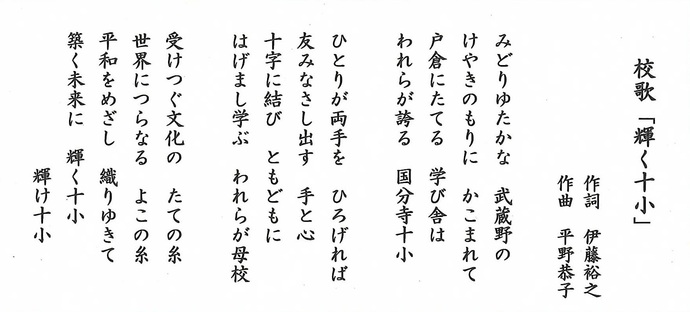 校歌「輝く十小」
作詞　伊藤裕之
作曲　平野恭子
みどりゆたかな　武蔵野の
けやきのもりに　かこまれて
戸倉にたてる　学び舎は
われらが誇る　国分寺十小
ひとりが両手を　ひろげれば
友みなさし出す　手と心
十字に結び　ともどもに
はげまし学ぶ　われらが母校
受けつぐ文化の　たての糸
世界につらなる　よこの糸
平和をめざし　織りゆきて
築く未来に　輝く十小
輝け十小